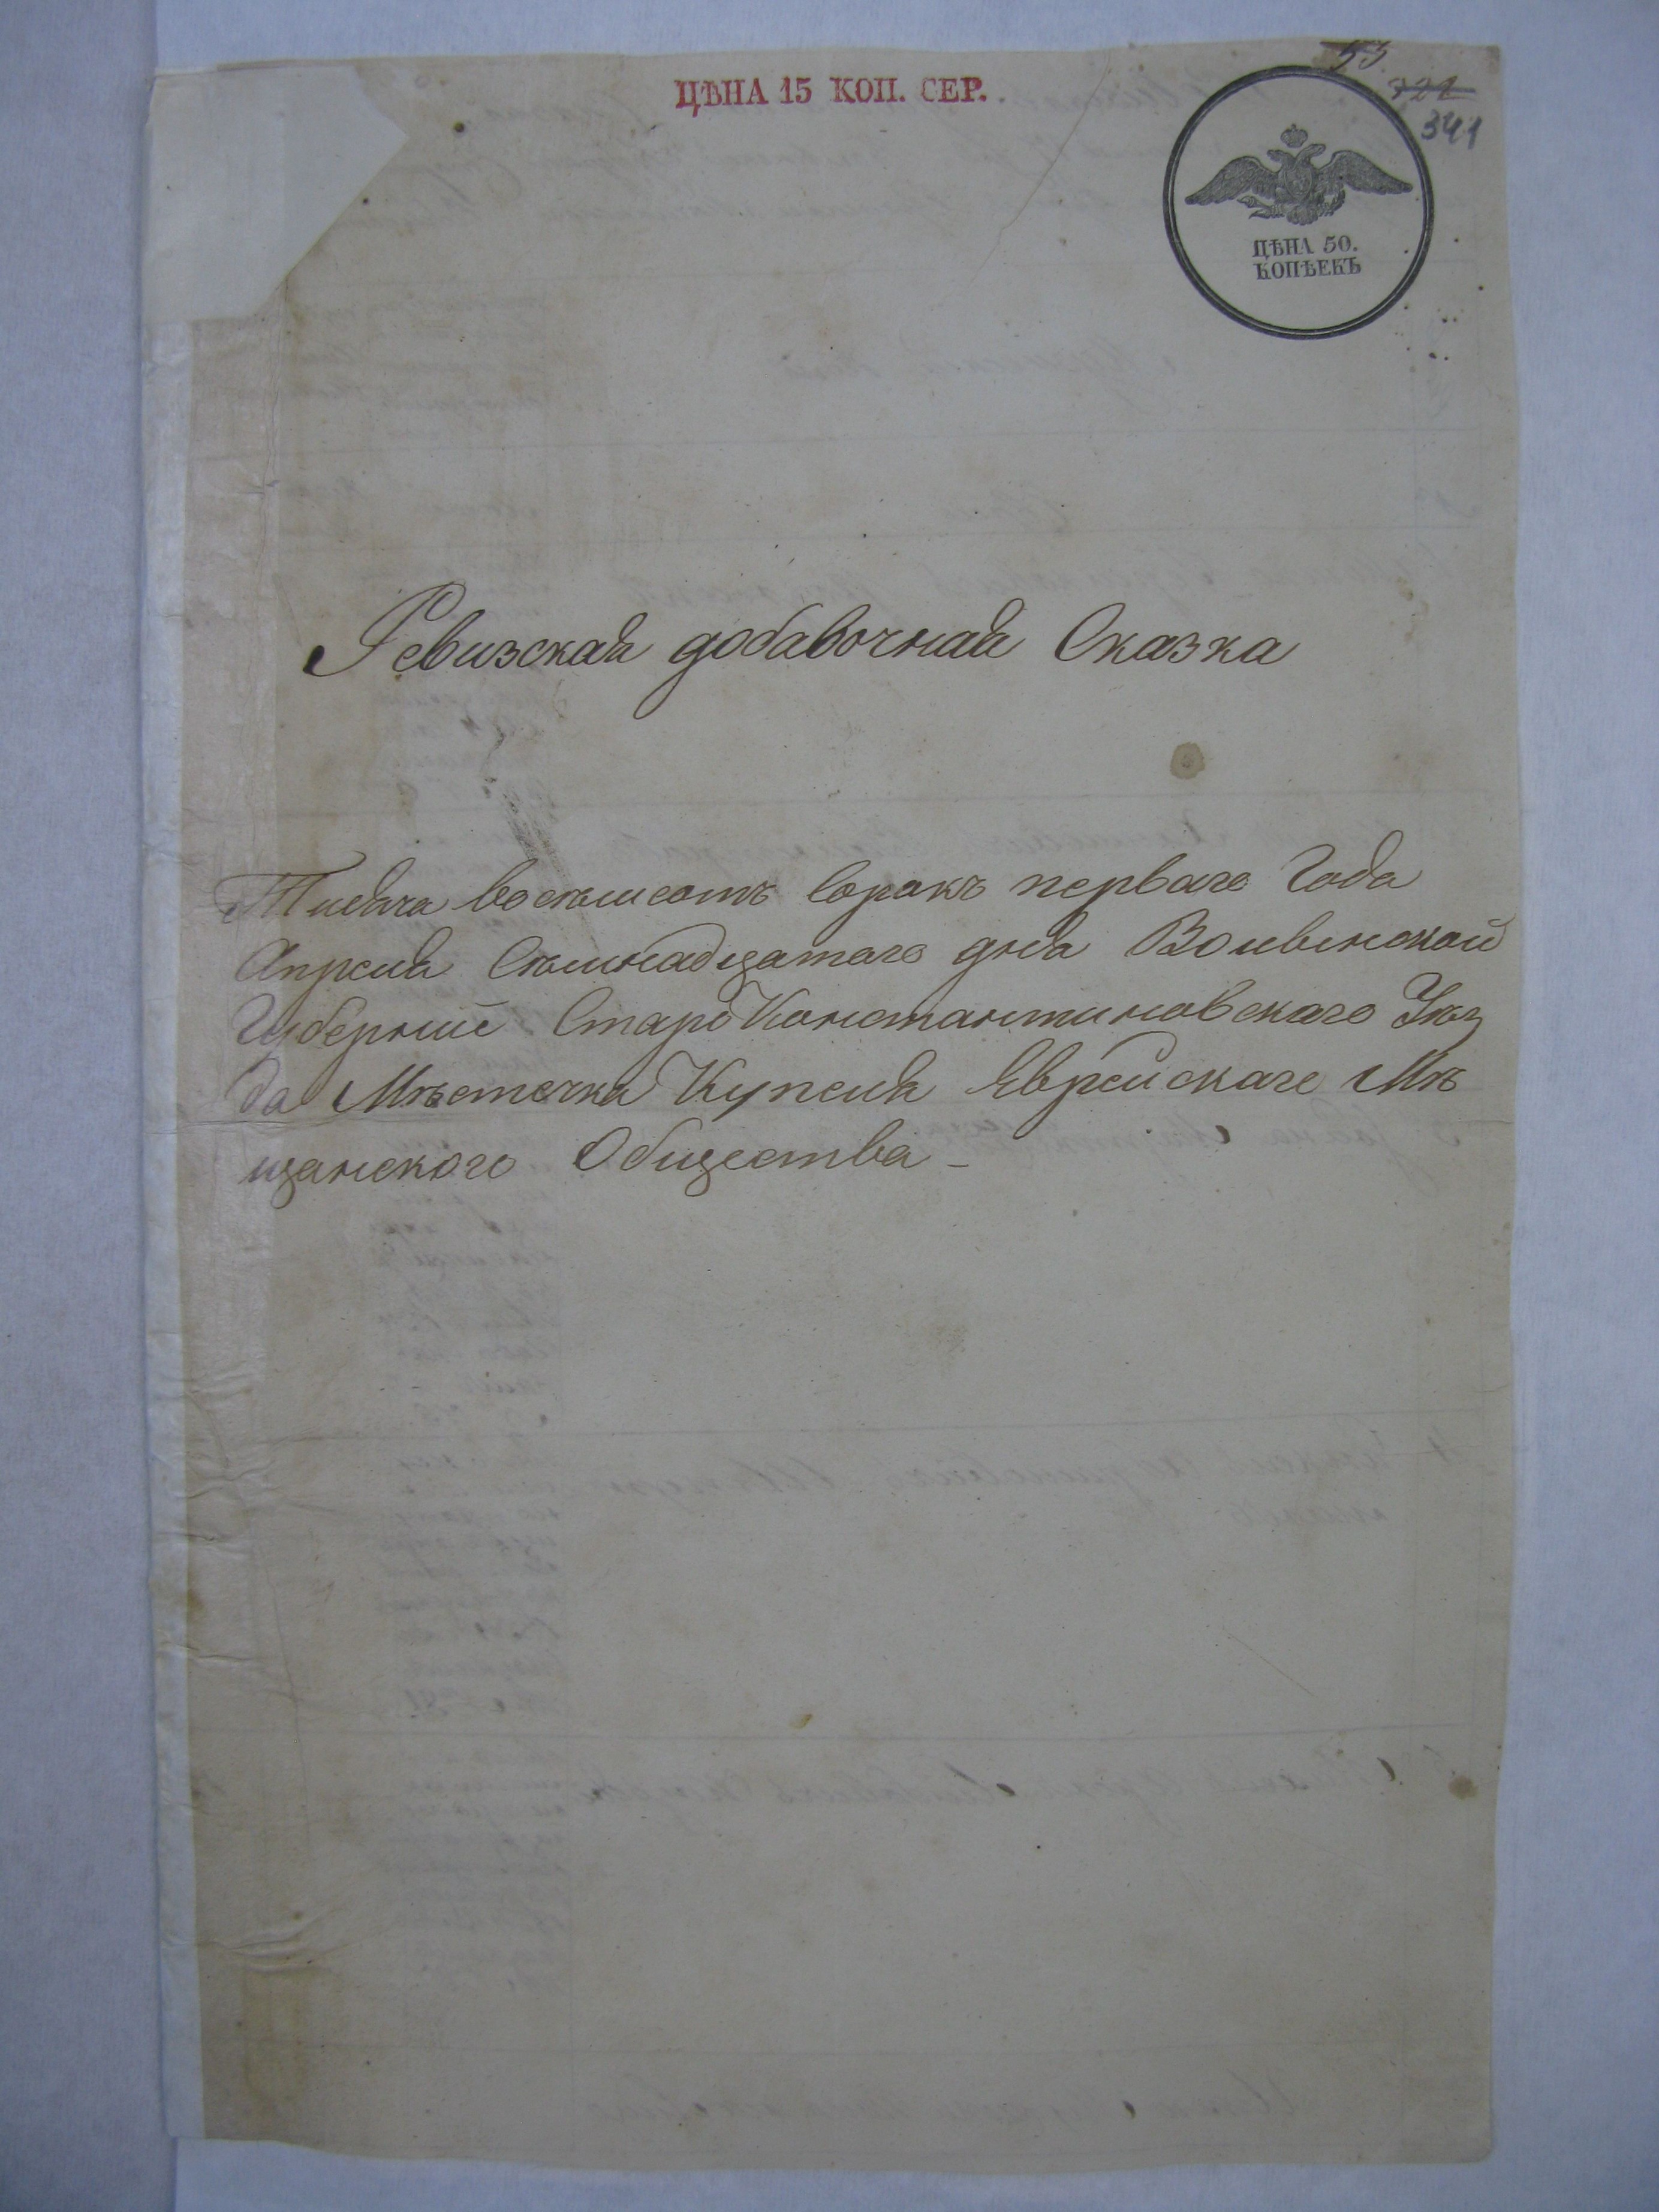 ЦѢНА 15 КОП. СЕР.
53
722
341
ЦѢНА 50.
КОПѢЕКЪ
Ревизская добавочная Сказка
Тисяча восемьсотъ сорокъ перваго Года
Апреля Семнадцатаго дня Волынской
Губерніи Старо Константиновскаго Уѣз
да Мѣстечка Купеля Еврейскаго Мѣ
щанского Общества -